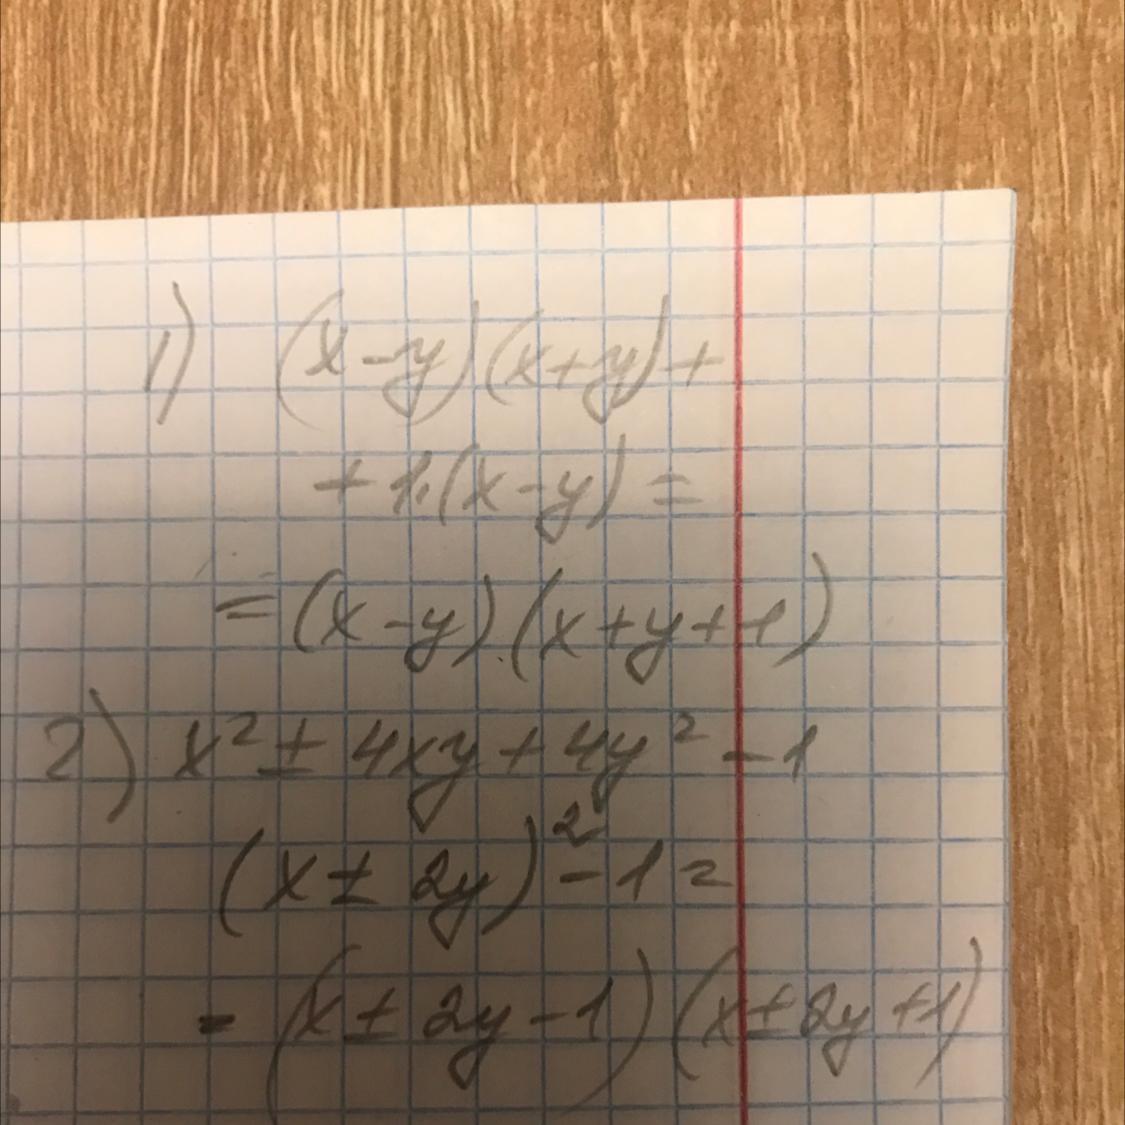 1) (x-y)(x+y)+
+1·(x-y)=
=(x-y)·(x+y+1)
2) x²±4xy+4y²-1
(x±2y)²-1=
=(x±2y-1)(x±2y+1)